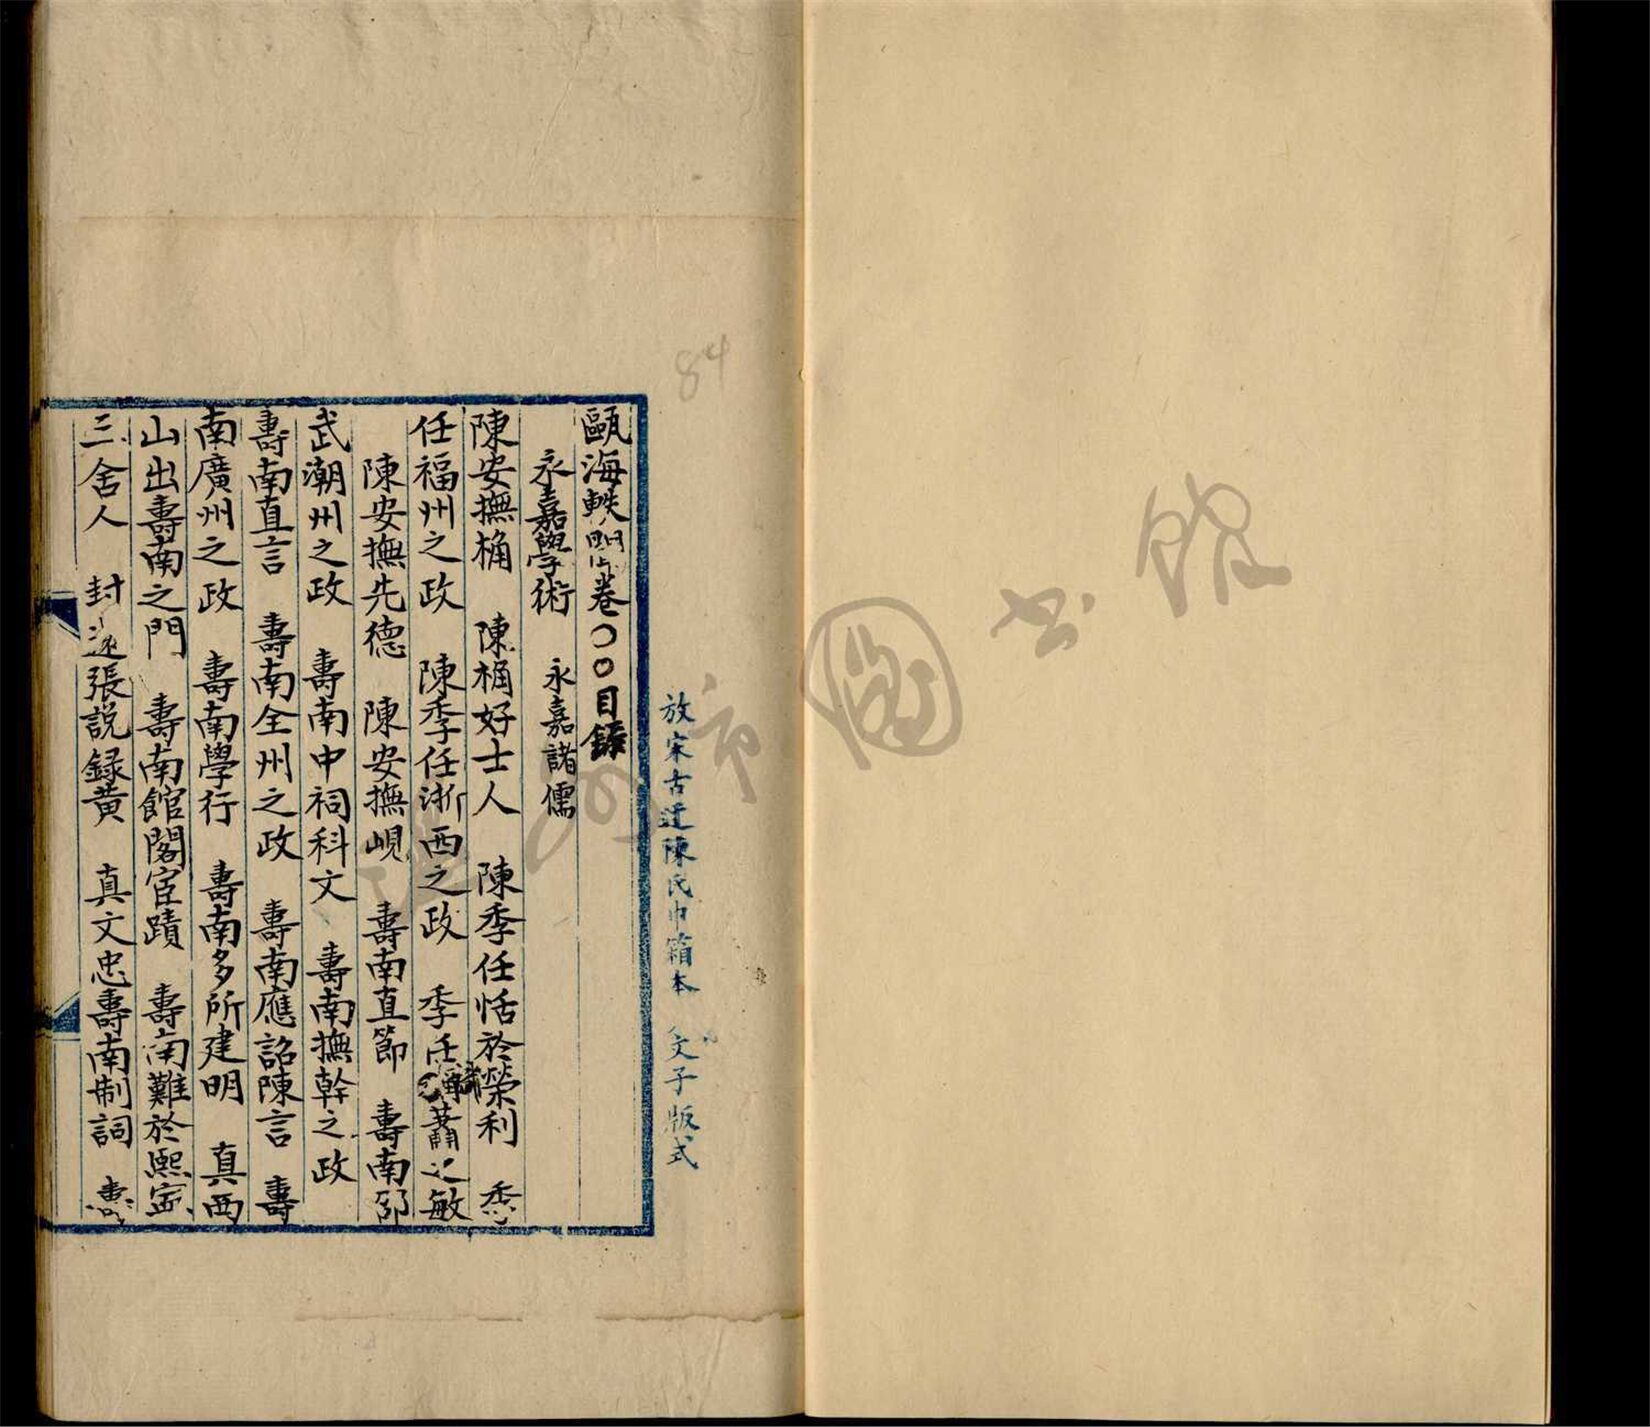 放宋古迂陳氏巾箱本 文子版式
甌海軼聞卷〇〇目錄
永嘉學術 永嘉諸儒
陳安撫桷 陳桷好士人 陳季任恬於榮利 季
任福州之政 陳季任浙西之政 季任之敏
陳安撫先德 陳安撫峴 壽南直節 壽南邵
武潮州之政 壽南中祠科文 壽南撫幹之政
壽南直言 壽南全州之政 壽南應詔陳言 壽
南廣州之政 壽南學行 壽南多所建明 真西
山出壽南之門 壽南館閣宦蹟 壽南難於熙寧
三舍人 封還張說錄黃 真文忠壽南制詞 壽
84
市圖書館